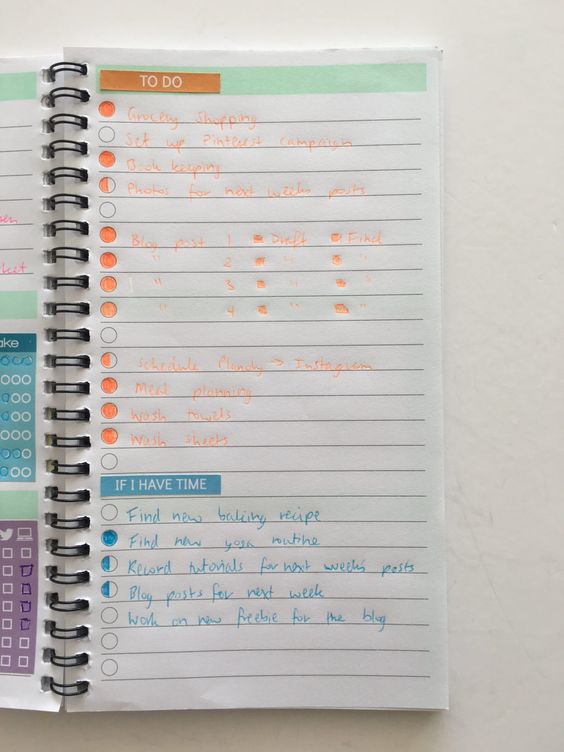 TO DO
Grocery Shopping
Set up Pinterest campaign
Book keeping
Photos for next weeks posts
Blog post 1 Draft Final
" 2 " "
" 3 " "
" 4 " "
Schedule Monday → Instagram
Meal planning
Wash towels
Wash sheets
IF I HAVE TIME
Find new baking recipe
Find new yoga routine
Record tutorials for next weeks posts
Blog posts for next week
Work on new freebie for the blog